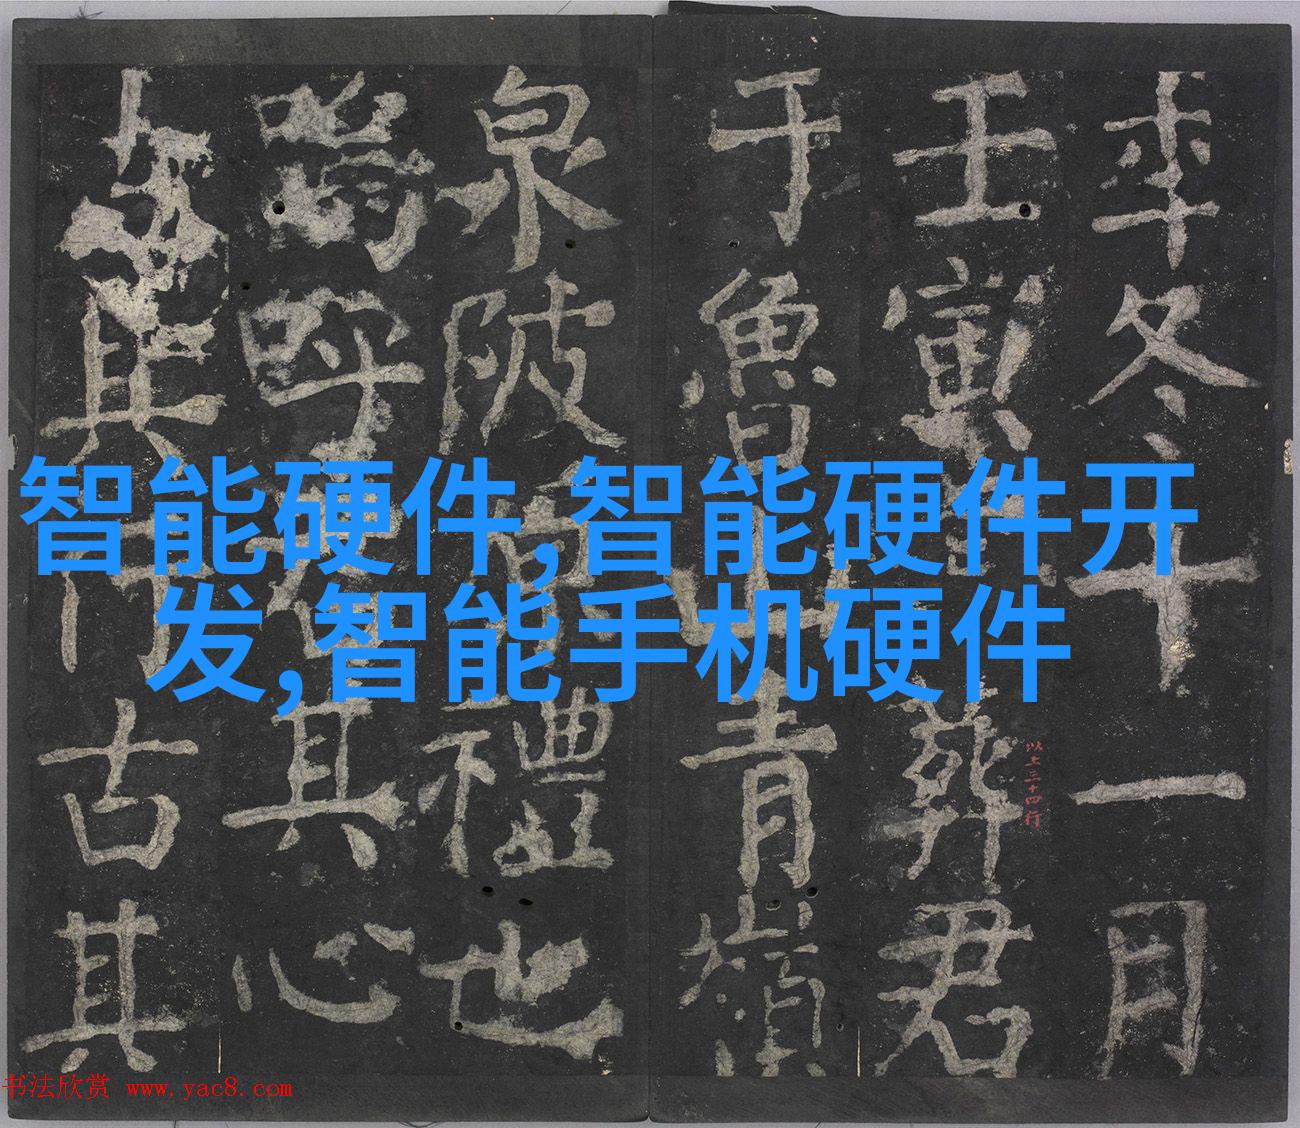 智能硬件,智能硬件开
发,智能手机硬件
年冬十一月
壬寅葬君
于魯山青嶺
泉陂禮也
嗚呼其心
其行古其
以上三十四行
书法欣赏 www.yac8.com